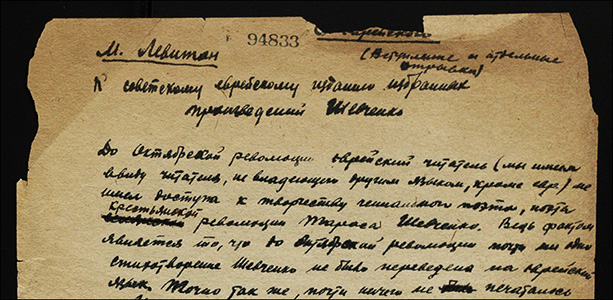 94833
М. Левитан
(Вступление и отдельные
отрывки)
К советскому еврейскому изданию избранных
произведений Шевченко
До Октябрской революции еврейский читатель (мы имеем
ввиду читателя, не владеющего другим языком, кроме евр.) не
имел доступа к творчеству гениального поэта, поэта
крестьянской
революции Тараса Шевченко. Ведь фактом
является то, что до октябрской революции почти ни одно
стихотворение Шевченко не было переведено на еврейский
язык. Точно так же, почти ничего не печаталось